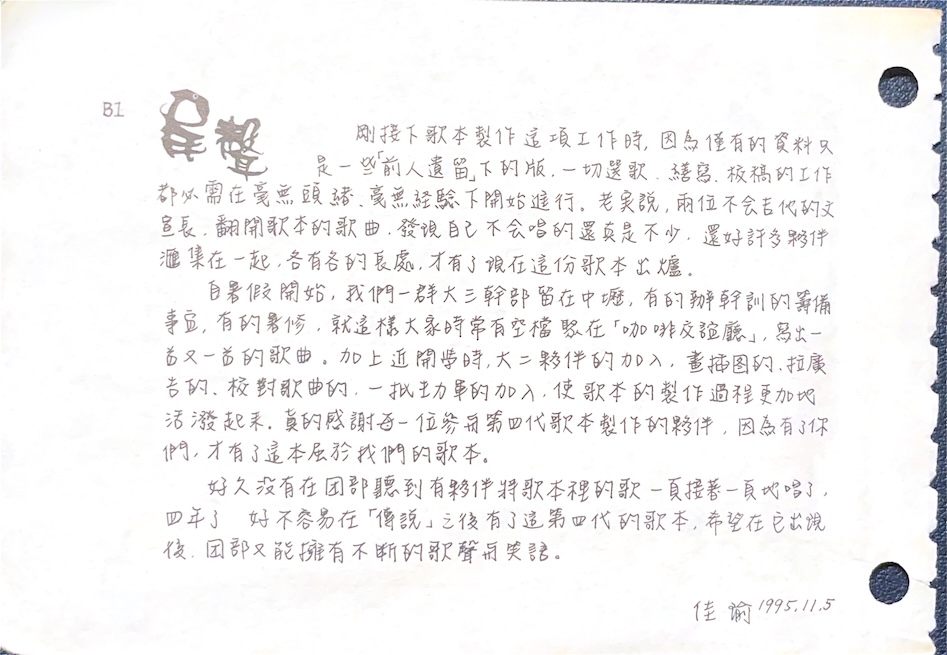 B1
星聲
剛接下歌本製作這項工作時，因為僅有的資料只
是一些「前人遺留」下的版，一切選歌、繕寫、校稿的工作
都必需在毫無頭緒、毫無经驗下開始進行。老实說，兩位不会吉他的文
宣長，翻開歌本的歌曲，發現自己不会唱的還真是不少，還好許多夥伴
滙集在一起，各有各的長處，才有了現在這份歌本出爐。
自暑假開始，我們一群大三幹部留在中壢，有的辦幹訓的籌備
事宜，有的暑修，就這樣大家時常有空檔聚在「咖啡交誼廳」，寫出一
首又一首的歌曲。加上近開學時，大二夥伴的加入，畫插图的、拉廣
告的、校對歌曲的，一批生力軍的加入，使歌本的製作過程更加地
活潑起來。真的感謝每一位參與第四代歌本製作的夥伴，因為有了你
們，才有了這本屬於我們的歌本。
好久沒有在团部聽到有夥伴將歌本裡的歌一頁接著一頁地唱了，
四年了 好不容易在「傳說」之後有了這第四代的歌本，希望在它出現
後，团部又能擁有不斷的歌聲與笑語。
佳諭 1995.11.5